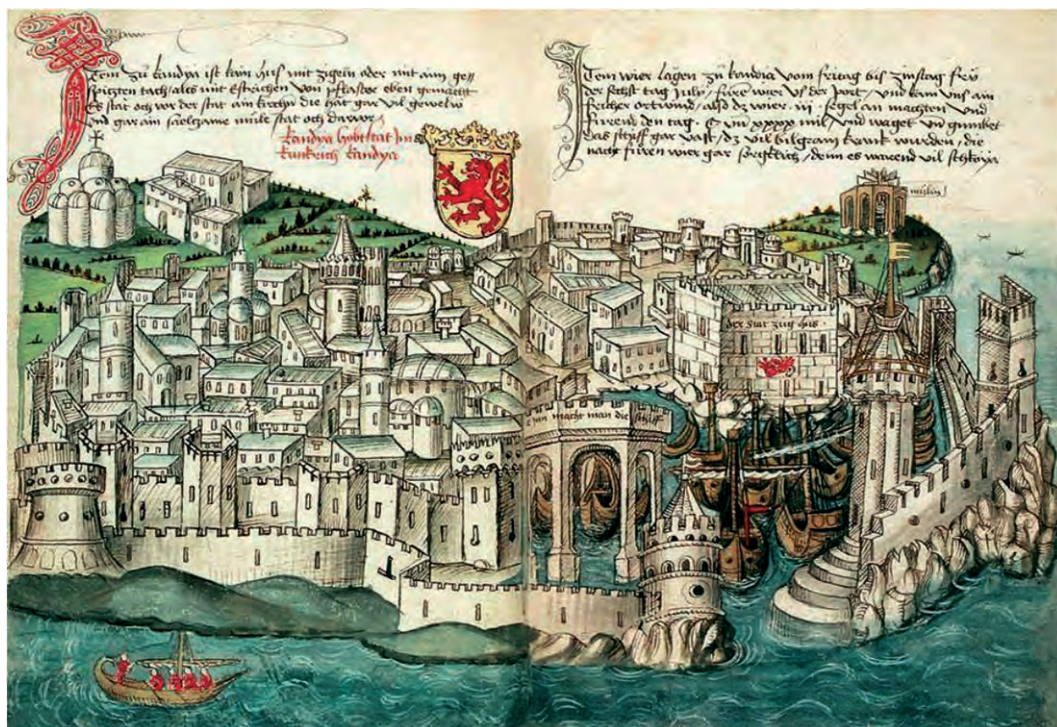 Item zů kandya ist kain hus mit zigeln oder mit aim ge//
spizten tach / als mit Estrichen von pflaster eben gemacht
Es stat och vor der stat ain kirchn die hat gar vil gewelw
vnd gar ain sälczame müle stat och darvor
kandya hobtstat Im
kunkrich kandya
Item wier lagen zů kandia vom fritag bis zinstag frü
der sechst tag July / füre wier vs der port / vnd kam vns ain
frischer ortwind / also dz wier .iij. segel an machten vnd
fürend den tag . C vnd xxxx mil / vnd waget vnd gumbet
das schyff gar vast / dz vil bilgram krank wurden / die
nacht füren wier gar sorgklich / denn es warend vil schkoya
mülin
der stat zug hus
macht man die schiff